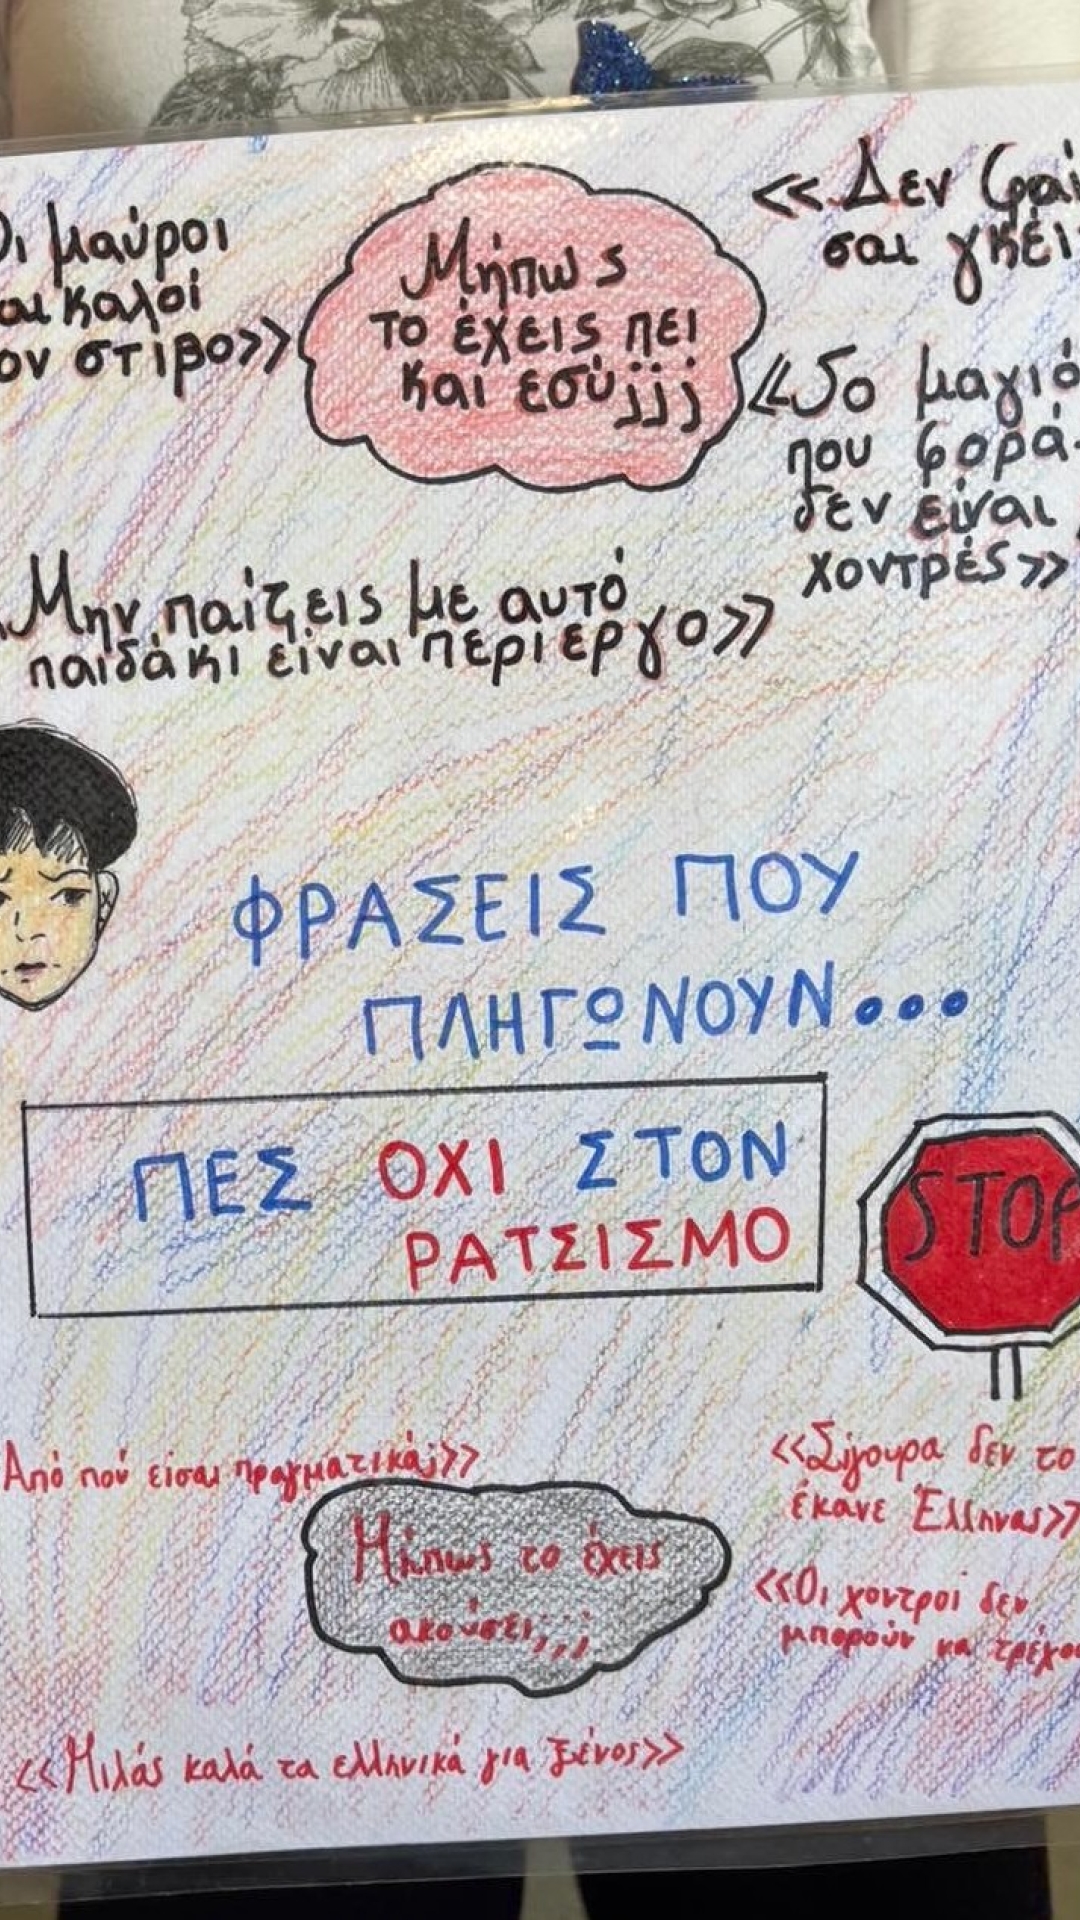 Οι μαύροι
αι καλοί
ον στίβο>>
Μήπως
το έχεις πει
και εσύ;;;
<<Δεν φαί
σαι γκέι
<<Το μαγιό
που φορά
δεν είναι
χοντρές>>
Μην παίζεις με αυτό
παιδάκι είναι περίεργο>>
ΦΡΑΣΕΙΣ ΠΟΥ
ΠΛΗΓΩΝΟΥΝ...
ΠΕΣ ΟΧΙ ΣΤΟΝ
ΡΑΤΣΙΣΜΟ
STOP
Από πού είσαι πραγματικά;>>
<<Σίγουρα δεν το
έκανε Έλληνας>>
Μήπως το έχεις
ακούσει;;;
<<Οι χοντροί δεν
μπορούν να τρέχου
<<Μιλάς καλά τα ελληνικά για ξένος>>